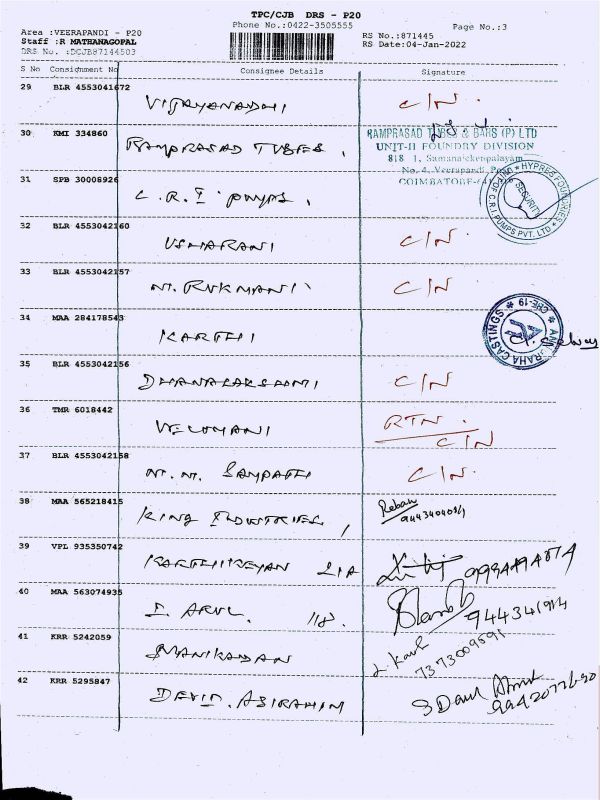 TPC/CJB DRS - P20
Phone No.:0422-3505555
Page No.:3
Area :VEERAPANDI - P20
Staff :R MATHANAGOPAL
DRS No. :DCJB87144503
RS No.:871445
RS Date:04-Jan-2022
S No Consignment No Consignee Details Signature
29 BLR 4553041672 VIJAYANADHI C/N.
30 KMI 334860 RAMPRASAD TUBES,
RAMPRASAD TUBES & BARS (P) LTD
UNIT-II FOUNDRY DIVISION
818 1, Samanaickenpalayam
No. 4, Veerapandi Post
COIMBATORE-641
31 SPB 30008926 C.R.I PUMPS,
HYPRES FOUNDRIES
SECURITY
C.R.I. PUMPS PVT. LTD
32 BLR 4553042160 USHARANI C/N.
33 BLR 4553042157 M. RUKMANI C/N
34 MAA 284178543 KARTHI
CASTINGS * CBE-19 *
35 BLR 4553042156 DHANALAKSHMI C/N
36 TMR 6018442 VELUMANI RTN.
C/N
37 BLR 4553042158 M.M. SAMPATH C/N.
38 MAA 565218415 KING INDUSTRIES,
39 VPL 935350742 KARTHIKEYAN LIA
40 MAA 563074935 I. ARUL 118.
41 KRR 5242059 MANIKADAN 7373009591
42 KRR 5295847 DEVID. ABIRAHIM